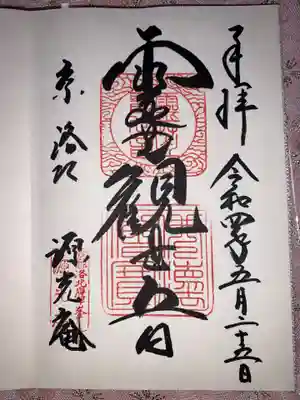 奉拝 令和四年五月二十五日
霊芝観世音
京洛北 源光庵